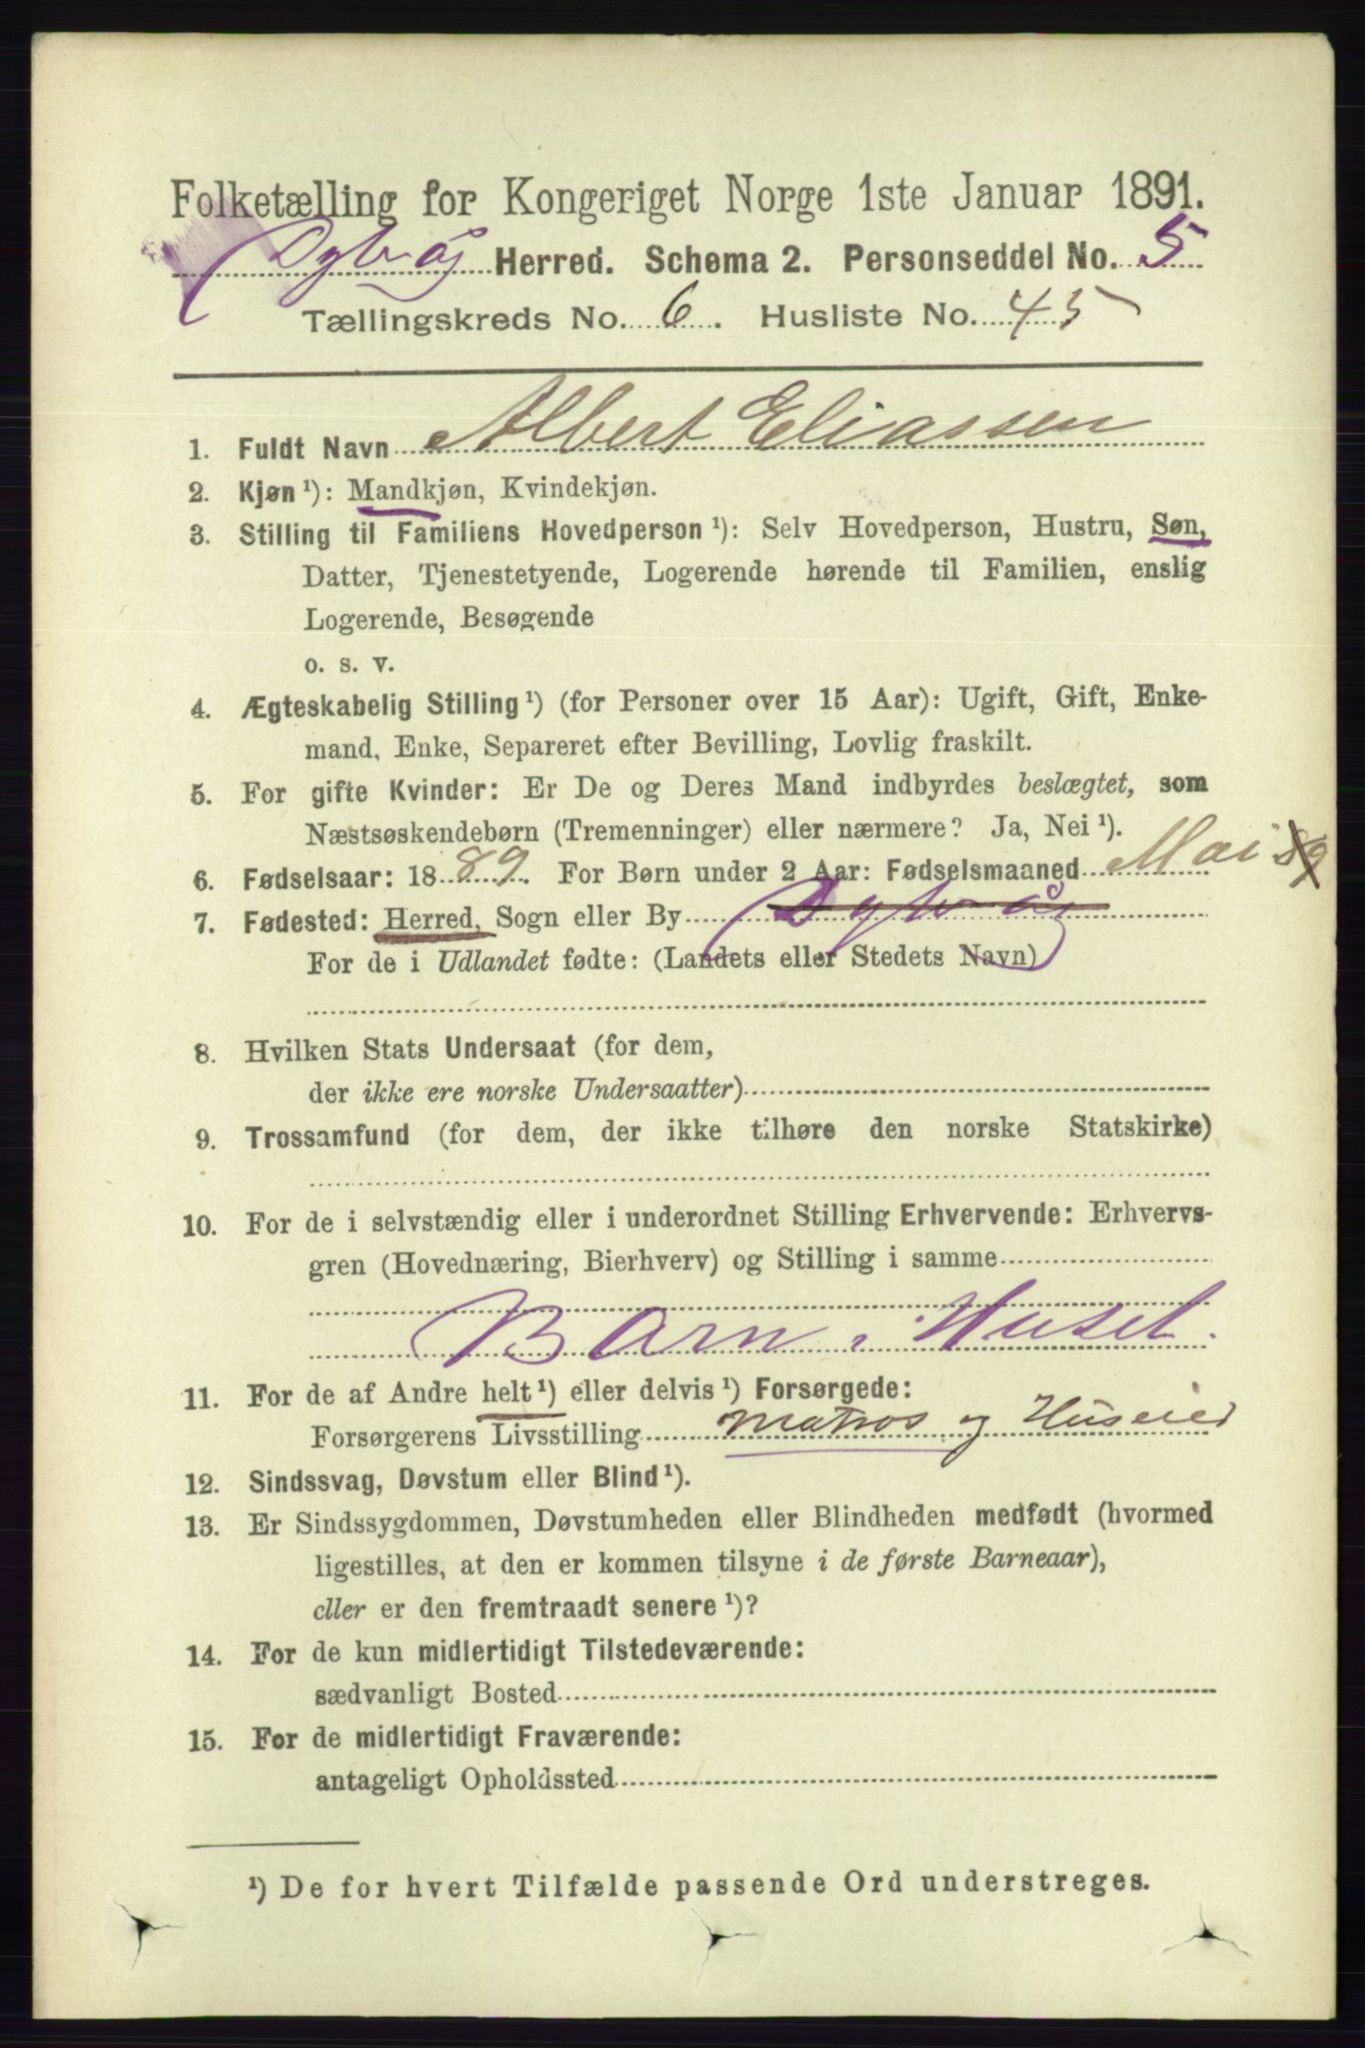 Folketælling for Kongeriget Norge 1ste Januar 1891.
Dybvåg Herred. Schema 2. Personseddel No. 5
Tællingskreds No. 6. Husliste No. 45
1. Fuldt Navn Albert Eliassen
2. Kjøn ¹): Mandkjøn, Kvindekjøn.
3. Stilling til Familiens Hovedperson ¹): Selv Hovedperson, Hustru, Søn,
Datter, Tjenestetyende, Logerende hørende til Familien, enslig
Logerende, Besøgende
o. s. v.
4. Ægteskabelig Stilling ¹) (for Personer over 15 Aar): Ugift, Gift, Enke-
mand, Enke, Separeret efter Bevilling, Lovlig fraskilt.
5. For gifte Kvinder: Er De og Deres Mand indbyrdes beslægtet, som
Næstsøskendebørn (Tremenninger) eller nærmere? Ja, Nei ¹).
6. Fødselsaar: 1889. For Børn under 2 Aar: Fødselsmaaned Mai 89
7. Fødested: Herred, Sogn eller By Dybvåg
For de i Udlandet fødte: (Landets eller Stedets Navn)
8. Hvilken Stats Undersaat (for dem,
der ikke ere norske Undersaatter)
9. Trossamfund (for dem, der ikke tilhøre den norske Statskirke)
10. For de i selvstændig eller i underordnet Stilling Erhvervende: Erhvervs-
gren (Hovednæring, Bierhverv) og Stilling i samme
Barn i Huset.
11. For de af Andre helt ¹) eller delvis ¹) Forsørgede:
Forsørgerens Livsstilling Matros og Huseier
12. Sindssvag, Døvstum eller Blind ¹).
13. Er Sindssygdommen, Døvstumheden eller Blindheden medfødt (hvormed
ligestilles, at den er kommen tilsyne i de første Barneaar),
eller er den fremtraadt senere ¹)?
14. For de kun midlertidigt Tilstedeværende:
sædvanligt Bosted
15. For de midlertidigt Fraværende:
antageligt Opholdssted
¹) De for hvert Tilfælde passende Ord understreges.